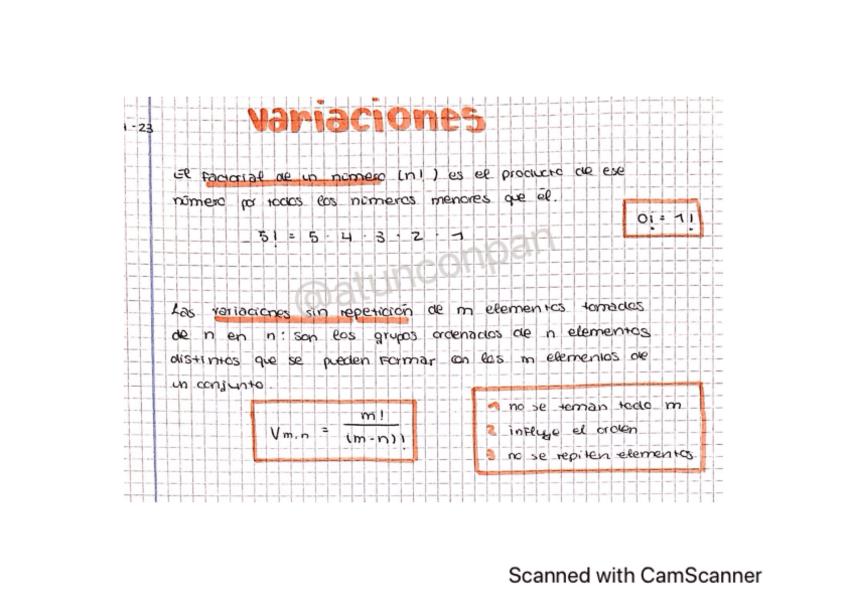 variaciones
1-23
El factorial de un número (n!) es el producto de ese
número por todos los números menores que él.
5! = 5 · 4 · 3 · 2 · 1
0! = 1!
@atunconpan
Las variaciones sin repetición de m elementos tomados
de n en n: son los grupos ordenados de n elementos
distintos que se pueden formar con los m elementos de
un conjunto.
Vm,n = m! / (m-n)!
1 no se toman todo m
2 influye el orden
3 no se repiten elementos
Scanned with CamScanner